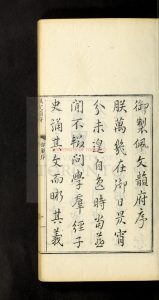 御製佩文韻府序
朕萬幾在御日昃宵
分未遑自逸時當燕
閒不輟問學羣經子
史誦其文而晰其義